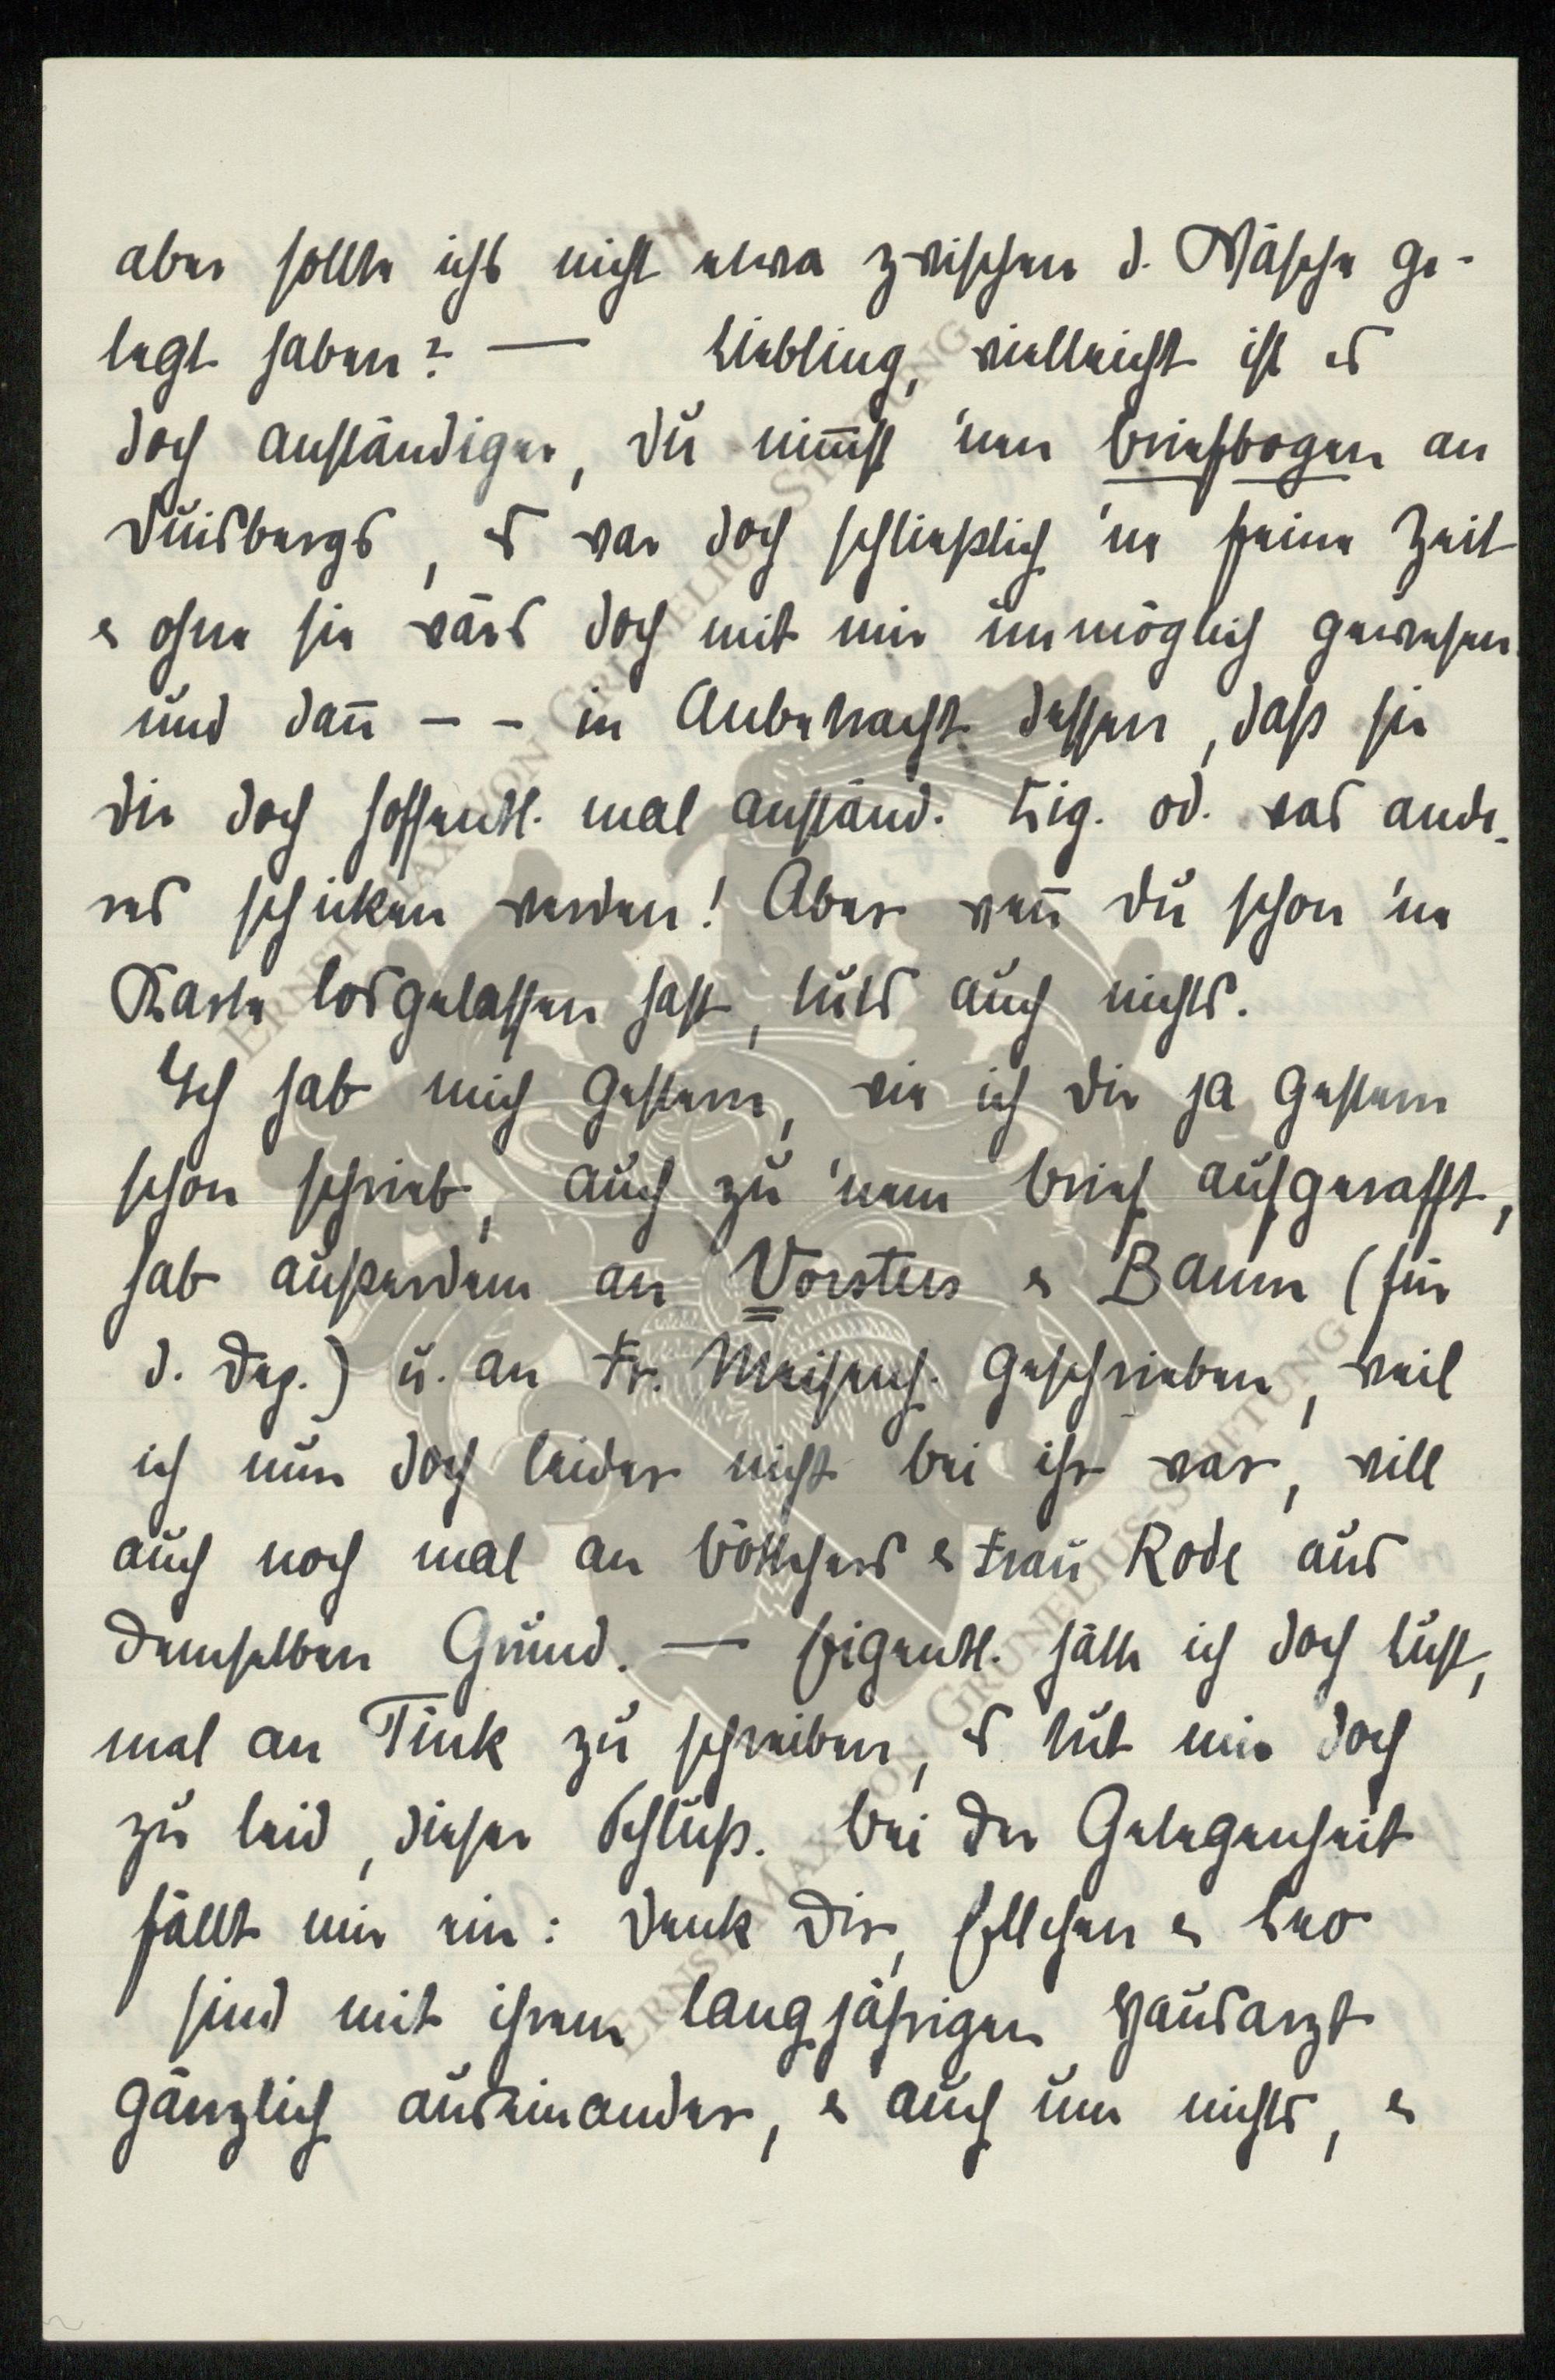 aber sollte ichs nicht etwa zwischen d. Wäsche ge-
legt haben? — Liebling, vielleicht ist es
doch anständiger, Du nim̅st 'nen Briefbogen an
Duisbergs, es war doch schließlich 'ne feine Zeit
& ohne sie wärs doch mit mir unmöglich gewesen
und dan̅ - - in Anbetracht dessen, daß sie
Dir doch hoffentl. mal anständ. Zig. od. was ande-
res schicken werden! Aber wen̅ Du schon 'ne
Karte losgelassen hast, tuts auch nichts.
Ich hab mich gestern, wie ich Dir ja gestern
schon schrieb, auch zu 'nem Brief aufgerafft,
hab außerdem an Vorsters & Baum (für
d. Dep.) u. an Fr. Meisenh. geschrieben, weil
ich nun doch leider nicht bei ihr war, will
auch noch mal an Böttchers & Frau Rode aus
demselben Grund. — Eigentl. hätte ich doch Lust,
mal an Tink zu schreiben, es tut mir doch
zu leid, dieser Schluß. Bei der Gelegenheit
fällt mir ein: denk Dir, Ellchen & Leo
sind mit ihrem langjährigen Hausarzt
gänzlich auseinander, & auch um nichts, &
ERNST MAX VON GRUNELIUS-STIFTUNG
ERNST MAX VON GRUNELIUS-STIFTUNG